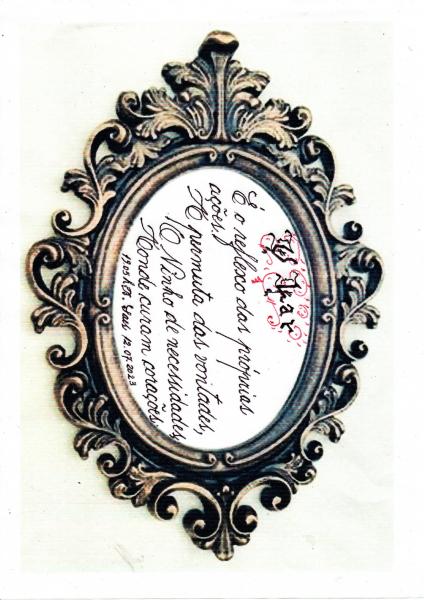 Amar
É o reflexo das próprias
ações,
A das vontades,
O Ninho de necessidades,
Aonde curam corações.
12.07.2023